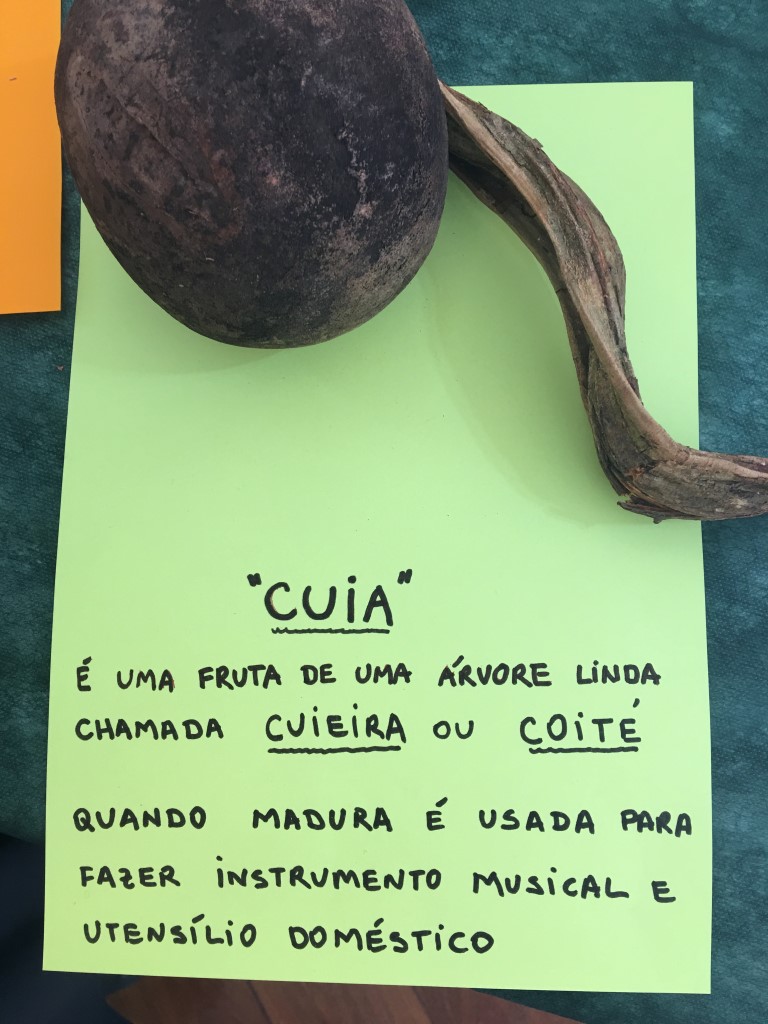 "CUiA"
É UMA FRUTA DE UMA ÁRVORE LiNDA
CHAMADA CUiEiRA OU COiTÉ
QUANDO MADURA É USADA PARA
FAZER iNSTRUMENTO MUSiCAL E
UTENSÍLiO DOMÉSTiCO